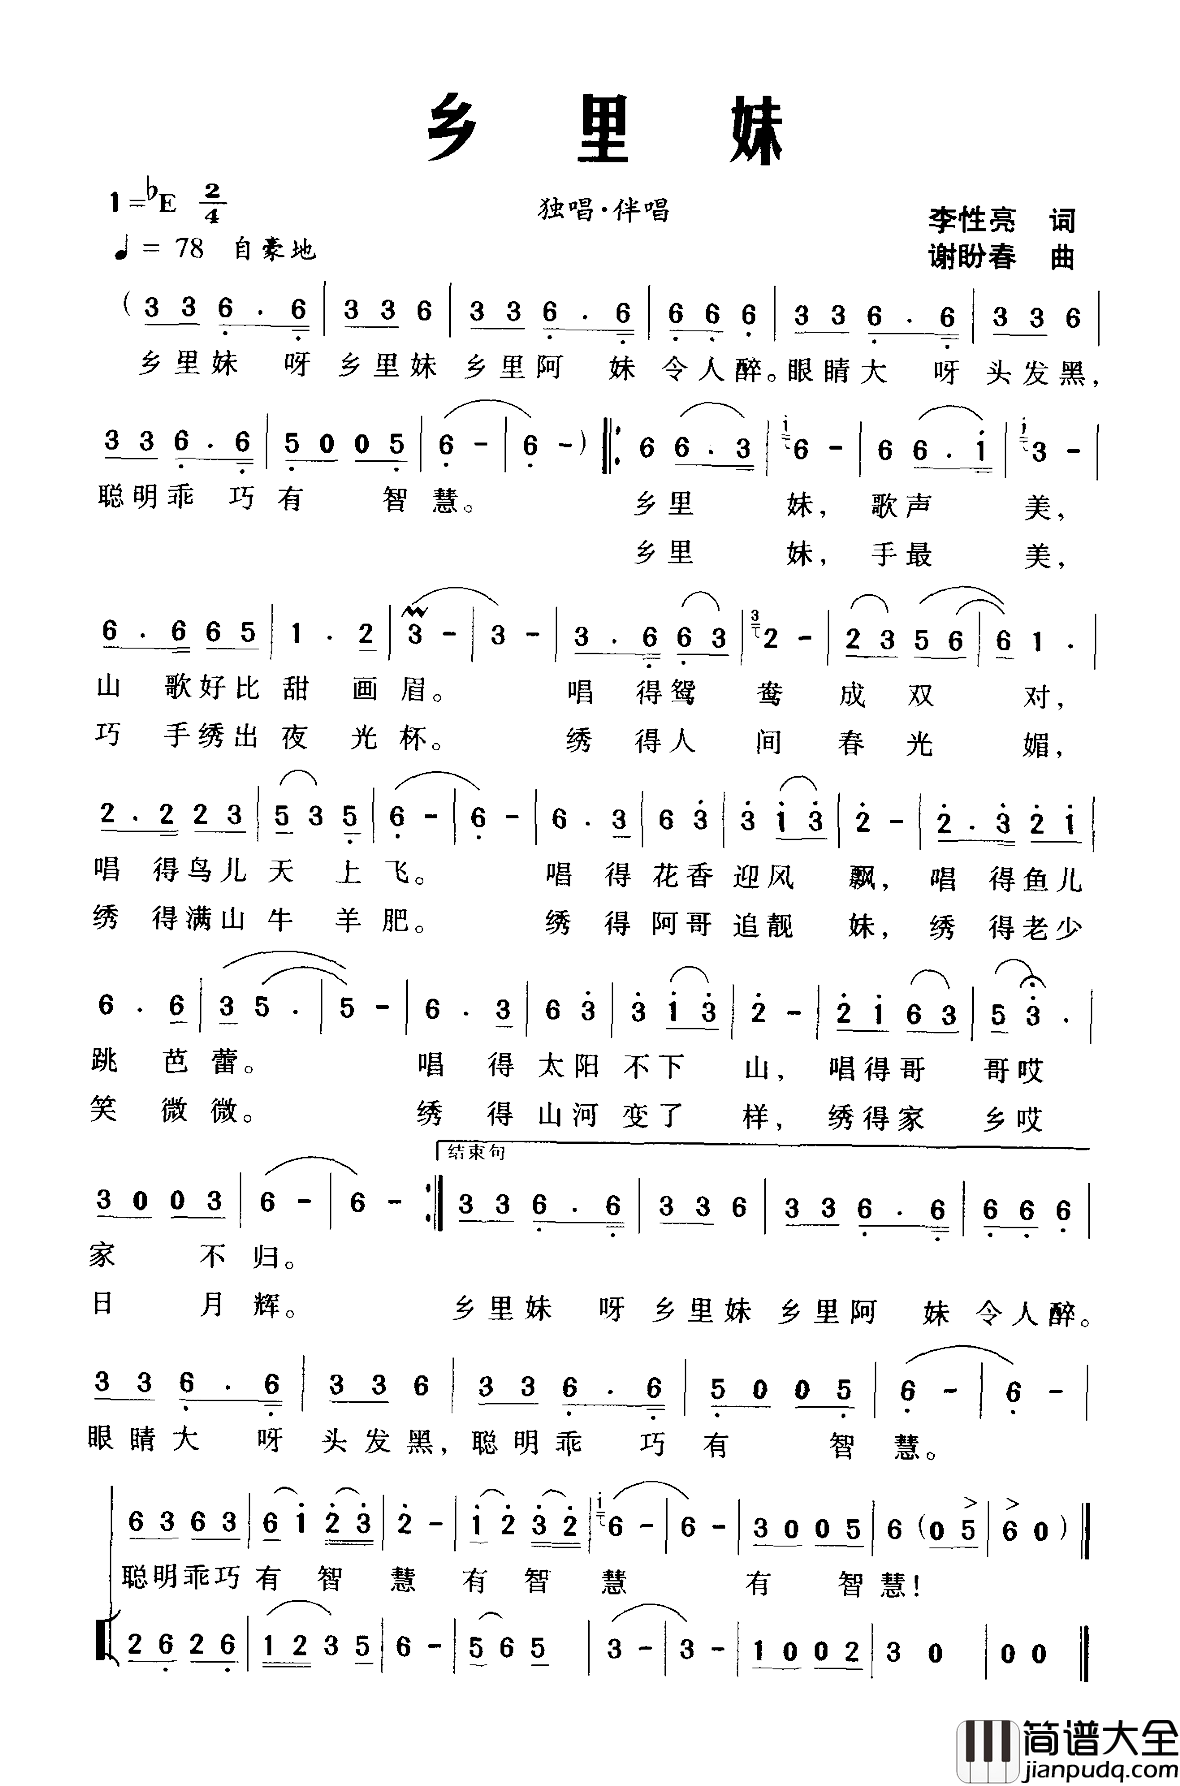 乡里妹
1=♭E 2/4
独唱·伴唱
李性亮 词
♩= 78 自豪地
谢盼春 曲
( 3 3 6 . 6 | 3 3 6 | 3 3 6 . 6 | 6 6 6 | 3 3 6 . 6 | 3 3 6 |
乡里妹 呀 乡里妹 乡里阿 妹 令人醉。眼睛大 呀 头发黑,
3 3 6 . 6 | 5 0 0 5 | 6 - | 6 - ) ‖: 6 6 . 3 | i 6 - | 6 6 . i | i 3 - |
聪明乖 巧有 智慧。 乡里 妹, 歌声 美,
乡里 妹, 手最 美,
6 . 6 6 5 | 1 . 2 | 3 - | 3 - | 3 . 6 6 3 | 3 2 - | 2 3 5 6 | 6 1 . |
山 歌好比 甜 画眉。 唱 得鸳 鸯 成双 对,
巧 手绣出 夜 光杯。 绣 得人 间 春光 媚,
2 . 2 2 3 | 5 3 5 | 6 - | 6 - | 6 . 3 | 6 3 | 3 i 3 | 2 - | 2 . 3 2 i |
唱 得鸟儿 天 上飞。 唱 得花香 迎风 飘, 唱 得鱼儿
绣 得满山 牛 羊肥。 绣 得阿哥 追靓 妹, 绣 得老少
6 . 6 | 3 5 . | 5 - | 6 . 3 | 6 3 | 3 i 3 | 2 - | 2 i 6 3 | 5 3 . |
跳 芭蕾。 唱 得太阳 不下 山, 唱得哥 哥哎
笑 微微。 绣 得山河 变了 样, 绣得家 乡哎
结束句
3 0 0 3 | 6 - | 6 - :‖ 3 3 6 . 6 | 3 3 6 | 3 3 6 . 6 | 6 6 6 |
家 不归。
日 月辉。 乡里妹 呀 乡里妹 乡里阿 妹 令人醉。
3 3 6 . 6 | 3 3 6 | 3 3 6 . 6 | 5 0 0 5 | 6 - | 6 - |
眼睛大 呀 头发黑, 聪明乖 巧有 智慧。
6 3 6 3 | 6 i 2 3 | 2 - | i 2 3 2 | i 6 - | 6 - | 3 0 0 5 | 6 ( 0 5 | 6 0 ) ‖
聪明乖巧 有 智 慧 有 智 慧 有 智慧!
2 6 2 6 | 1 2 3 5 | 6 - | 5 6 5 | 3 - | 3 - | 1 0 0 2 | 3 0 | 0 0 ‖
简谱大全
jianpudq.com